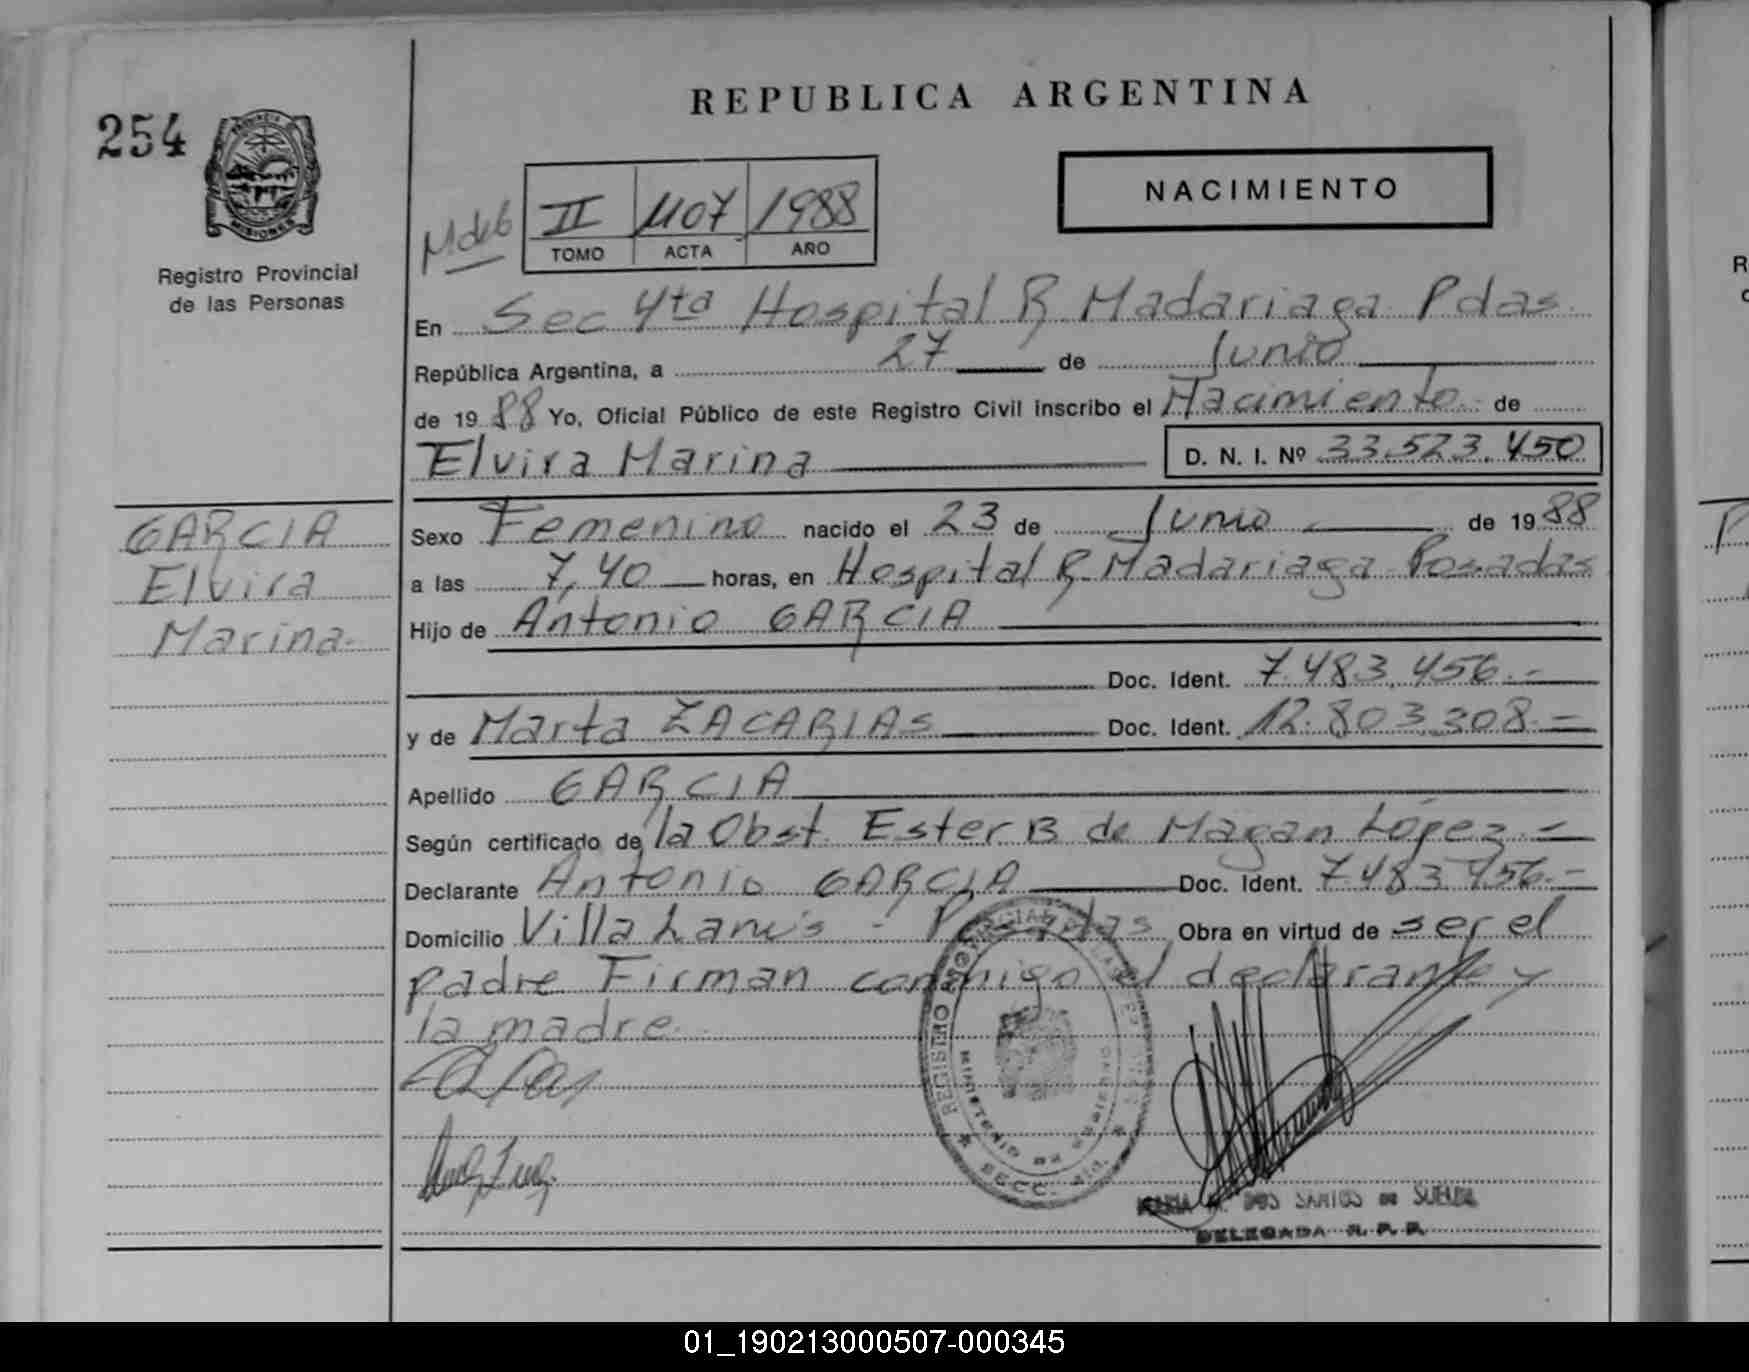 REPUBLICA ARGENTINA
254
PROVINCIA
MISIONES
Registro Provincial
de las Personas
NACIMIENTO
II 1107 1988
TOMO ACTA AÑO
En Sec 4ta Hospital R Madariaga Pdas.
República Argentina, a 27 de Junio
de 1988 Yo, Oficial Público de este Registro Civil inscribo el Nacimiento de
Elvira Marina D. N. I. Nº 33.523.450
GARCIA
Elvira
Marina
Sexo Femenino nacido el 23 de Junio de 1988
a las 7,40 horas, en Hospital R. Madariaga Posadas
Hijo de Antonio GARCIA
Doc. Ident. 7.483.456.-
y de Marta ZACARIAS Doc. Ident. 12.803.308.-
Apellido GARCIA
Según certificado de la Obst. Ester B de Magan López.-
Declarante Antonio GARCIA Doc. Ident. 7483456.-
Domicilio Villa Lanús - Posadas Obra en virtud de ser el
padre Firman conmigo el declarante y
la madre.
REGISTRO PROVINCIAL DE LAS
MINISTERIO DE GOBIERNO
SECC. 4ta.
DOS SANTOS DE
DELEGADA R. P. P.
01_190213000507-000345